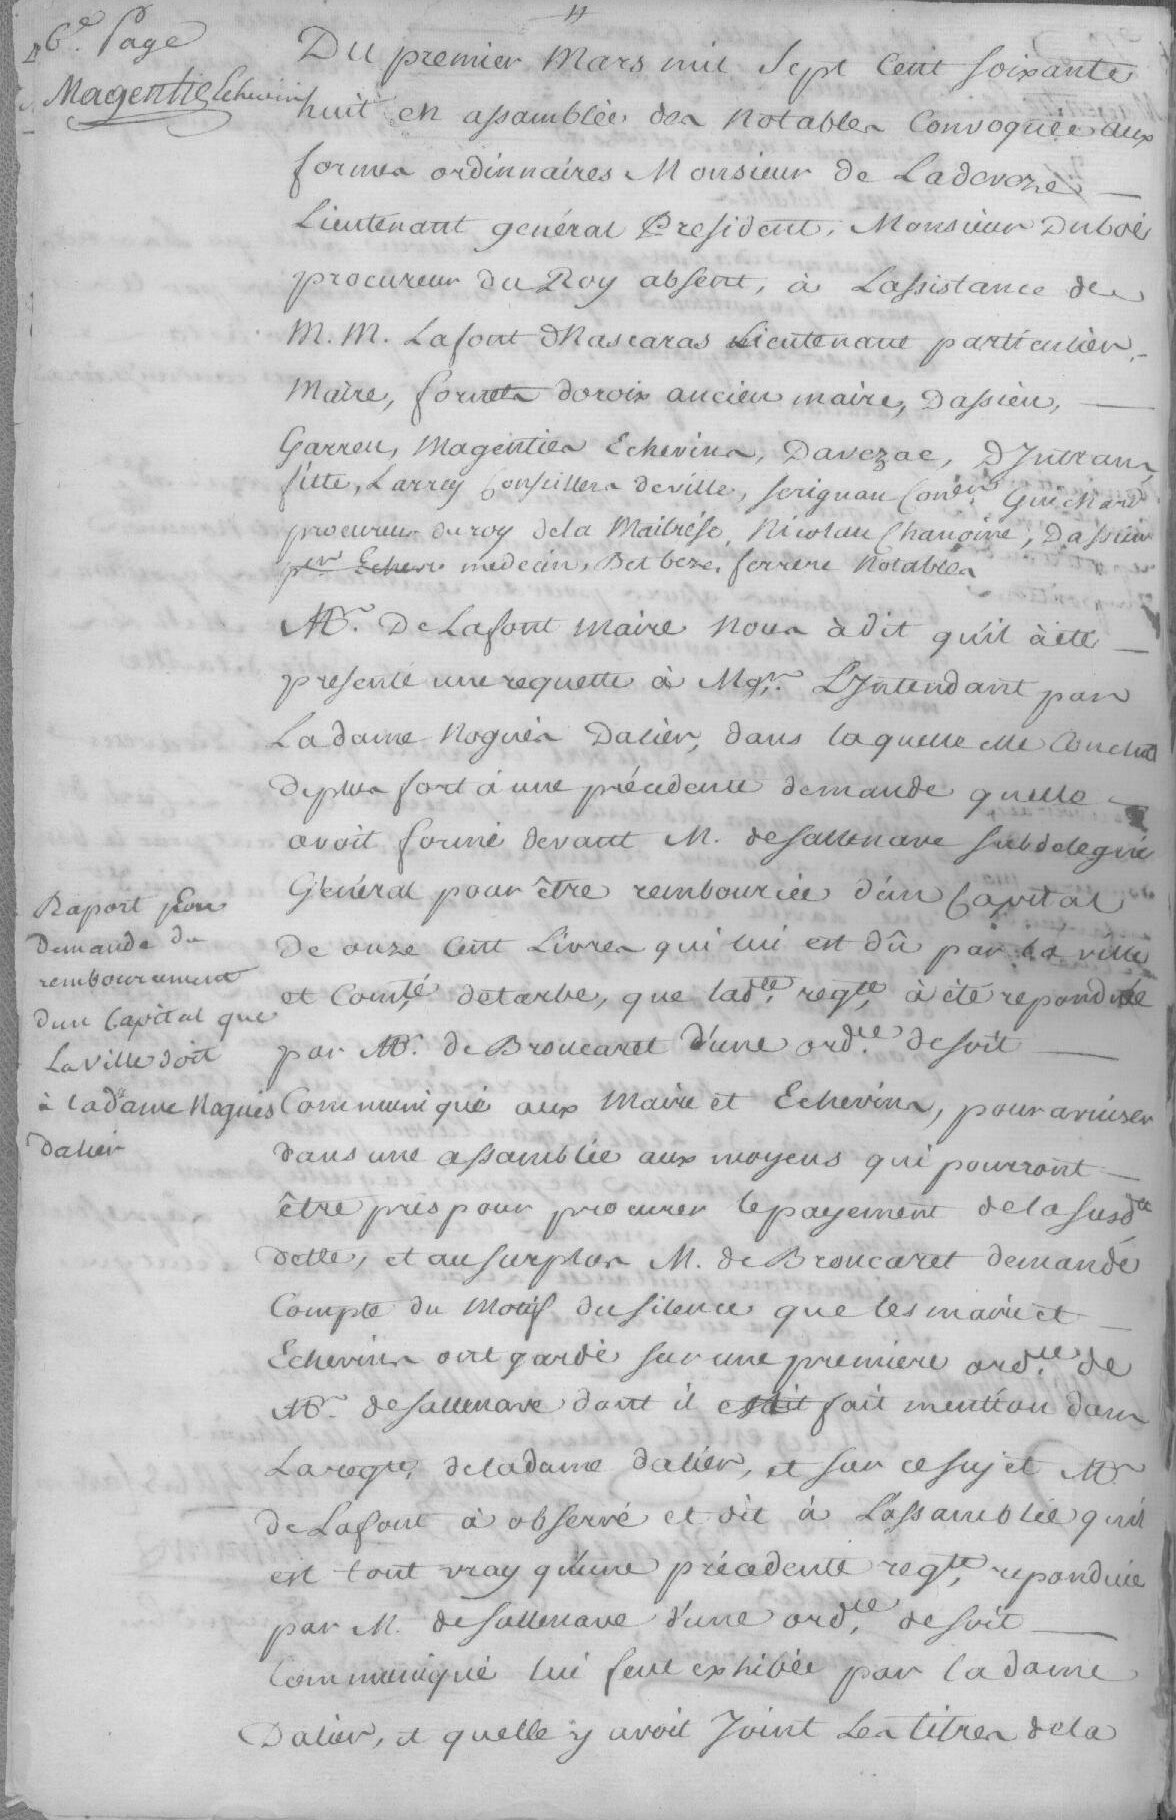 6e. Page
Magenties Echevin
Du premier Mars mil Sept Cent soixante
huit en assamblée des Notables Convoquée aux
formes ordinnaires Monsieur de Ladeveze
Lieutenant general President, Monsieur Dubois
procureur du Roy absent, à Lassistance de
M. M. Lafont Mascaras Lieutenant particulier,
Maire, fornets doroix ancien maire, Dassieu,
Garreu, Magenties Echevins, Davezac, DJntrans,
fitte, Larrey Conseillers deville, serignan Conder Guichard
procureur du roy dela Maitrise, Nicolau Chanoine, Dassieu
per medecin, Betbeze, ferrere Notables
Mr. De Lafont maire nous à dit qu'il àeté
presenté une requette à Mgr. LJntendant par
La dame Noguès Dalier, dans laquelle elle Conclud
deplus fort à une précedente demande quelle
avoit formé devant M. desallenave subdelegué
Général pour être remboursée d'un Capital
de onze Cent Livres qui lui est dû par la ville
et Comté detarbe, que ladte. regte, à été repondue
par Mr. de Broucaret d'une ordce. desoit
Communiqué aux Maire et Echevins, pour aviser
dans une assamblée aux moyens qui pourront
être pris pour procurer lepayement delasusdte
dette, et au surplus M. de Broucaret demande
Compte du Motif du silence que les maire et
Echevins ont gardé sur une premiere ordce. de
Mr. desallenave dont il est fait mention dans
La regte, deladame dalier, et sur ce sujet Mr
deLafont à observé et dit à Lassamblée qu'il
est tout vray qu'une précedente regte, repondue
par M. desallenave d'une ordce, desoit
Communiqué lui feut exhibée par la dame
Dalier, et quelle y avoit Joint Les titres dela
Raport pour
demande du
remboursement
dun Capital que
La ville doit
à la dame Nogués
dalier